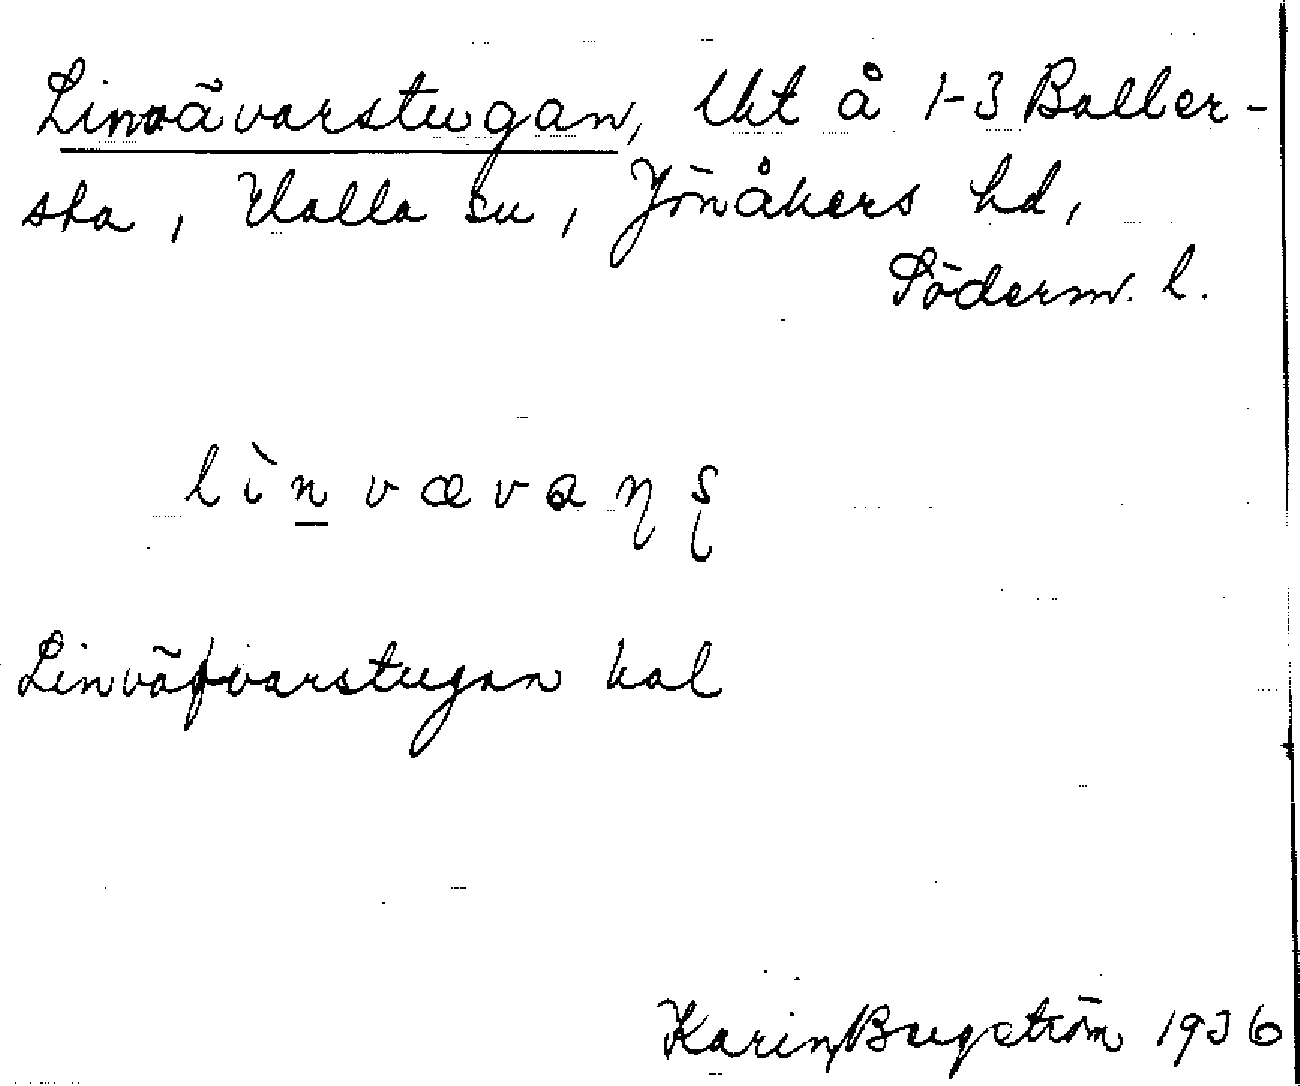 Linvävarstugan, Ukt å 1-3 Baller-
sta, Halla sn, Jönåkers hd,
Söderm. l.
lìn vævaɳ ʂ
Linväfvarstugan kal
Karin Bergström 1936